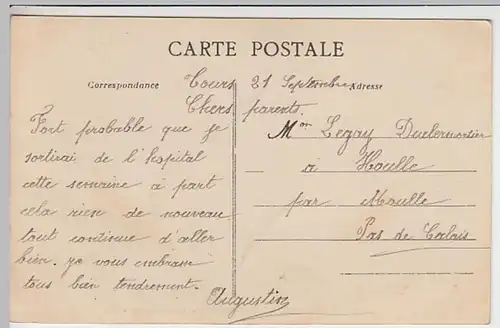 CARTE POSTALE
Correspondance
Adresse
Tours 21 Septembre
Chers parents.
Fort probable que je
sortirai de l'hopital
cette semaine à part
cela rien de nouveau
tout continue d'aller
bien. je vous embrasse
tous bien tendrement.
Augustin
Mon Legay Duclermortier
à Houlle
par Moulle
Pas de Calais